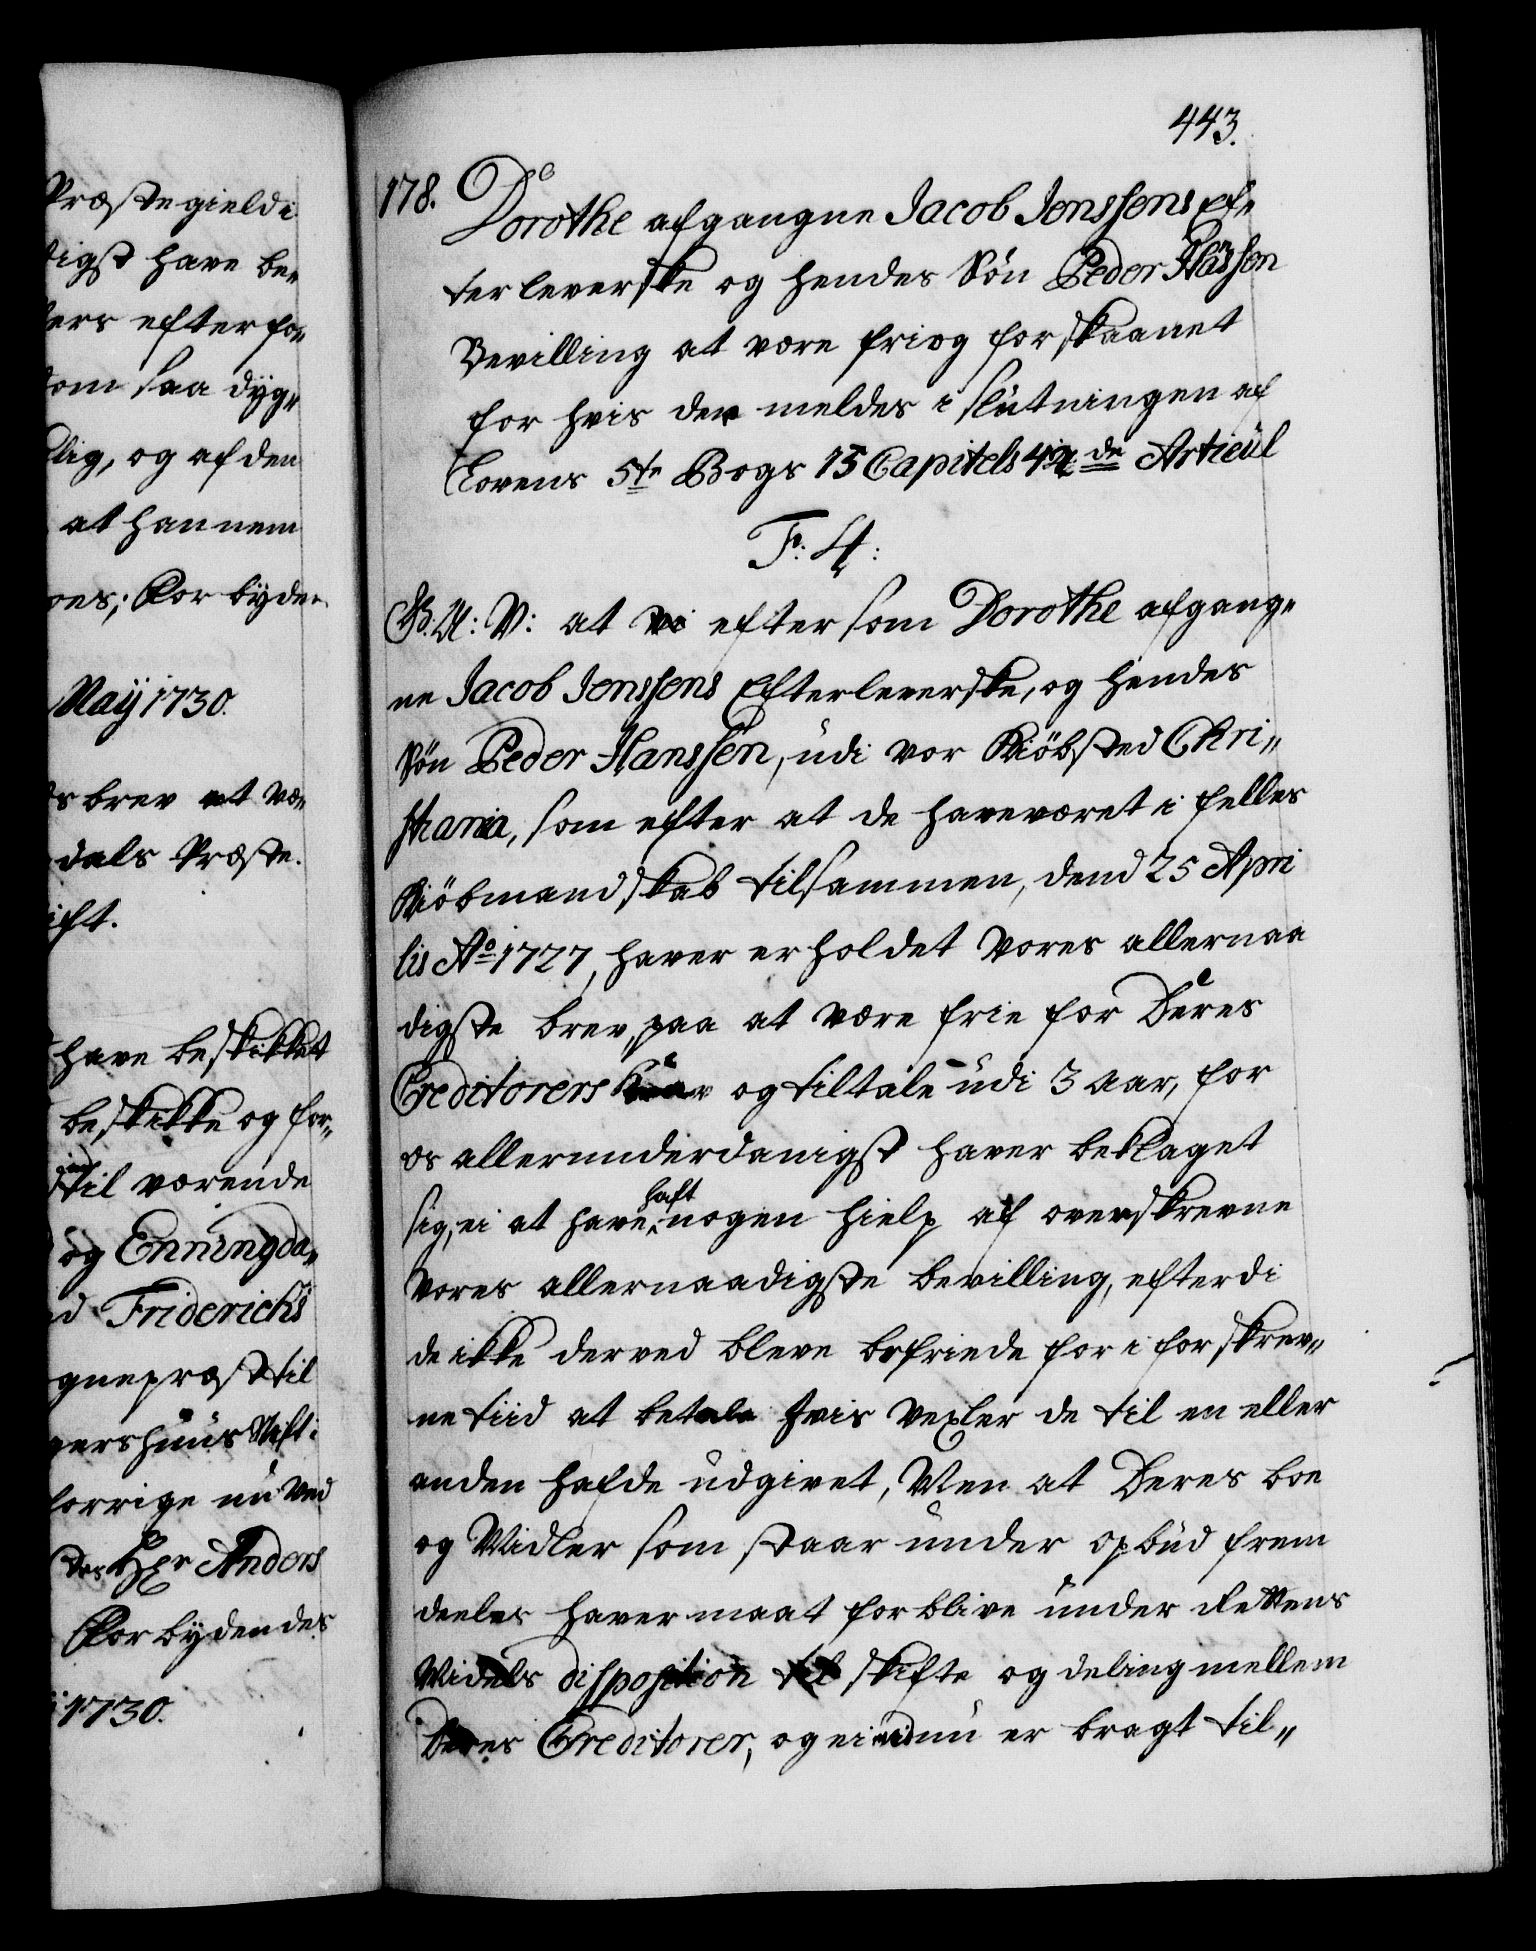 443.
178. Dorothe afgangne Jacob Jenssens Ef„
terleverske og hendes Søn Peder Hanssen
Bevilling at være fri og forskaanet
for hvis der meldes i slutningen af
Lovens 5te Bogs 13 Capitels 42de Articul
F: 4:
G. A: V: at vi eftersom Dorothe afgang„
ne Jacob Jenssens Efterleverske, og hendes
Søn Peder Hanssen, udi vor Kiöbsted Chri„
stiania, som efter at de have været i felles
Kiöbmandskab tilsammen, dend 25 Apri
lis Ao 1727, haver erholdet Vores allernaa
digste brev, paa at være frie for Deres
Creditorers Krav og tiltale udi 3 aar, for
os allerunderdanigst haver beklaget
sig, ei at have haft nogen hielp af overskrevne
Vores allernaadigste bevilling, efterdi
de ikke derved bleve befriede for i forskrev„
ne tiid at betale hvis Vexler de til en eller
anden hafde udgivet, Men at Deres boe
og Midler som staar under opbud frem
deeles haver maat forblive under Rettens
Middels disposition til skifte og deling mellem
Deres Creditorer, og ei endnu er bragt til„
Præstegield i
digst have be„
ers efterfor
som saa dyg„
lig, og af den
at hannem
ones; Forbyden
May 1730.
s brev at væ„
dals Præste.
ift.
have beskikket
beskikke og for„
til værende
og Enningda„
d Friderichs
gnepræst til
gershuus Stift i
forrige nu ved
des Hr Anders
Forbydendes
1730.